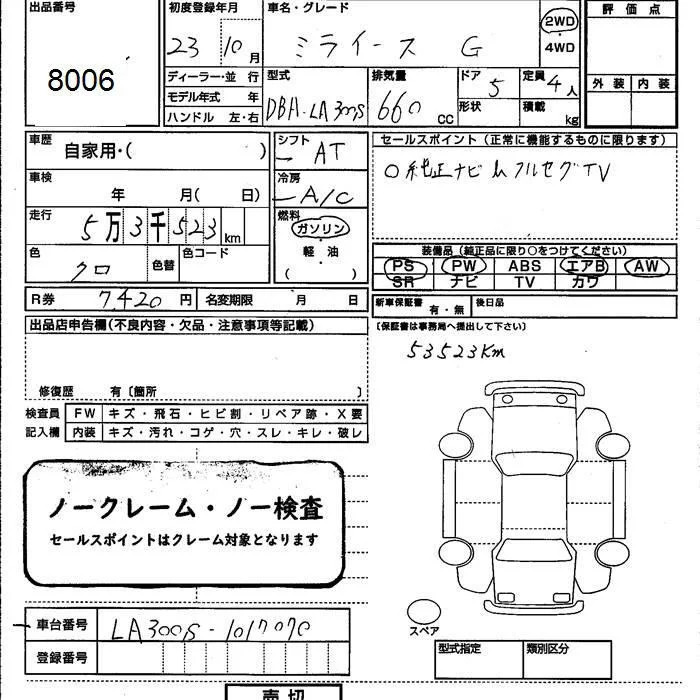 出品番号
8006
初度登録年月
23 10月
車名・グレード
ミライース G
2WD
・
4WD
評価点
外装 内装
ディーラー・並行
モデル年式 年
ハンドル 左・右
型式
DBA-LA300S
排気量
660 cc
ドア
5
形状
定員
4人
積載
kg
車歴
自家用・( )
車検
年 月( 日)
走行
5万3千523km
色
クロ
色替
色コード
R券 7420円 名変期限 月 日
シフト
AT
冷房
A/C
燃料
ガソリン
・
軽油
( )
セールスポイント(正常に機能するものに限ります)
○純正ナビ フルセグTV
装備品(純正品に限り○をつけてください)
PS PW ABS エアB AW
SR ナビ TV カワ
新車保証書 有・無 後日品
(保証書は事務局へ提出して下さい)
53523Km
出品店申告欄(不良内容・欠品・注意事項等記載)
修復歴 有〔箇所 〕
検査員 FW キズ・飛石・ヒビ割・リペア跡・X要
記入欄 内装 キズ・汚れ・コゲ・穴・スレ・キレ・破レ
ノークレーム・ノー検査
セールスポイントはクレーム対象となります
車台番号 LA300S-1017070
登録番号
スペア
型式指定 類別区分
売切